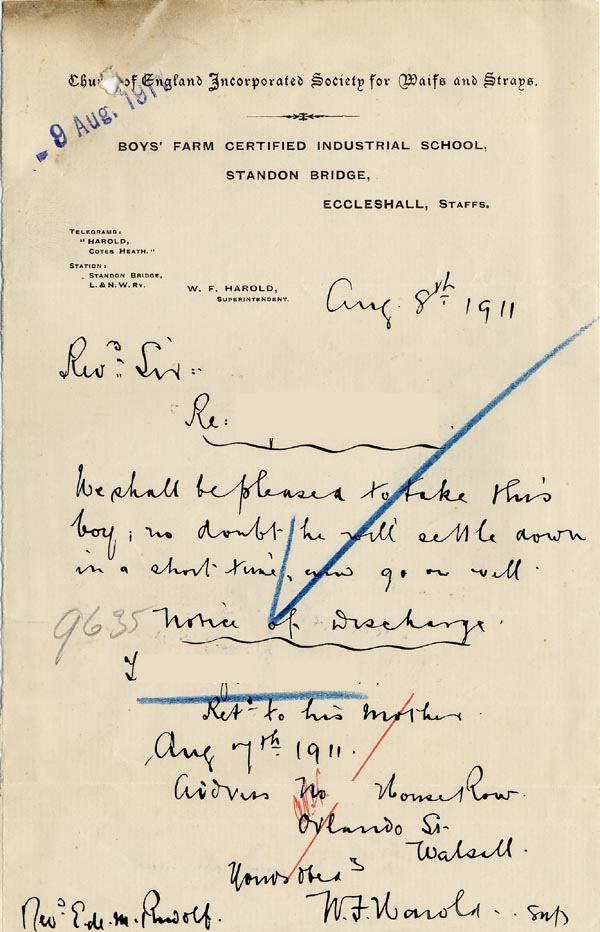 Church of England Incorporated Society for Waifs and Strays.
9 Aug. 1911
BOYS' FARM CERTIFIED INDUSTRIAL SCHOOL,
STANDON BRIDGE,
ECCLESHALL, STAFFS.
TELEGRAMS:
"HAROLD,
COTES HEATH."
STATION:
STANDON BRIDGE,
L. & N.W. RY.
W. F. HAROLD,
SUPERINTENDENT.
Aug. 8th 1911
Revd Sir
Re:
We shall be pleased to take this
boy; no doubt he will settle down
in a short time, and go on well.
9635 Notice of Discharge.
Retd to his Mother.
Aug 7th 1911.
Address No House Row.
Orlando St
Walsall.
Yours obed
W. F. Harold Supt
Revd E de M. Rudolf.